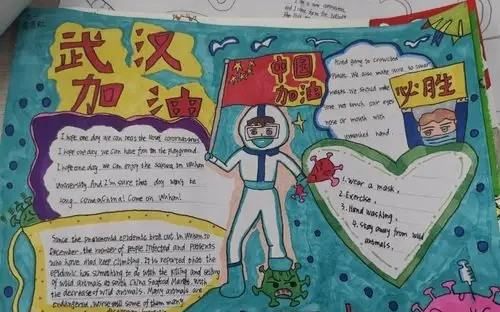 武汉
加油
中国
加油
必胜
I hope one day we can beat the novel coronavirus
I hope one day we can have fun on the playground
I hope one day we can enjoy the sakura in Wuhan
university. And I'm sure that day won't be
long. come on China! Come on Wuhan!
Avoid going to crowded
places. We also make sure to wear
masks. we should make
sure not touch our eyes
nose or mouth with
unwashed hand.
1. wear a mask.
2. Exercise.
3. Hand washing.
4. stay away from wild
animals.
Since the pneumonia epidemic broke out in Wuhan to
December, the number of people infected and patients
who have died keep climbing. It is reported that the
epidemic has something to do with the killing and selling
of wild animals at south China Seafood Market. With
the decrease of wild animals. Many animals are
endangered. Worse still some of them many